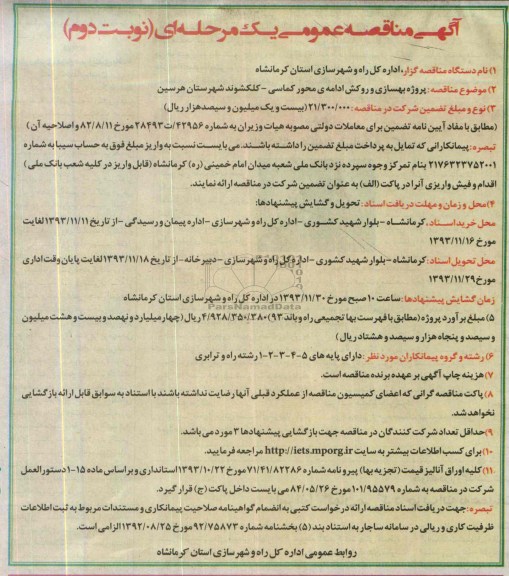 آگهی مناقصه عمومی یک مرحله‌ای (نوبت دوم)
۱) نام دستگاه مناقصه گزار: اداره کل راه و شهرسازی استان کرمانشاه
۲) موضوع مناقصه: پروژه بهسازی و روکش ادامه ی محور کماسی - کلکشوند شهرستان هرسین
۳) نوع و مبلغ تضمین شرکت در مناقصه: ۲۱/۳۰۰/۰۰۰ (بیست و یک میلیون و سیصدهزار ریال)
(مطابق با مفاد آیین نامه تضمین برای معاملات دولتی مصوبه هیات وزیران به شماره ۴۲۹۵۶/ت۲۸۴۹۳ مورخ ۸۲/۸/۱۱ و اصلاحیه آن)
تبصره: پیمانکارانی که تمایل به پرداخت مبلغ تضمین را داشته باشند، می بایست نسبت به واریز مبلغ فوق به حساب سیبا به شماره
۲۱۷۶۳۲۳۷۵۲۰۰۱ بنام تمرکز وجوه سپرده نزد بانک ملی شعبه میدان امام خمینی (ره) کرمانشاه (قابل واریز در کلیه شعب بانک ملی)
اقدام و فیش واریزی آنرا در پاکت (الف) به عنوان تضمین شرکت در مناقصه ارائه نمایند.
۴) محل و زمان و مهلت دریافت اسناد: تحویل و گشایش پیشنهادها:
محل خرید اسناد: کرمانشاه - بلوار شهید کشوری - اداره کل راه و شهرسازی - اداره پیمان و رسیدگی - از تاریخ ۱۳۹۳/۱۱/۱۱ لغایت
مورخ ۱۳۹۳/۱۱/۱۶
محل تحویل اسناد: کرمانشاه - بلوار شهید کشوری - اداره کل راه و شهرسازی - دبیرخانه - از تاریخ ۱۳۹۳/۱۱/۱۸ لغایت پایان وقت اداری
مورخ ۱۳۹۳/۱۱/۲۹
زمان گشایش پیشنهادها: ساعت ۱۰ صبح مورخ ۱۳۹۳/۱۱/۳۰ در اداره کل راه و شهرسازی استان کرمانشاه
۵) مبلغ برآورد پروژه (مطابق با فهرست بها تجمیعی راه و باند ۹۳) ۴/۹۲۸/۳۵۰/۳۸۰ ریال (چهار میلیارد و نهصد و بیست و هشت میلیون
و سیصد و پنجاه هزار و سیصد و هشتاد ریال)
۶) رشته و گروه پیمانکاران مورد نظر: دارای پایه های ۵-۴-۳-۲-۱ رشته راه و ترابری
۷) هزینه چاپ آگهی بر عهده برنده مناقصه است.
۸) پاکت مناقصه گرانی که اعضای کمیسیون مناقصه از عملکرد قبلی آنها رضایت نداشته باشند با استناد به سوابق قابل ارائه بازگشایی
نخواهد شد.
۹) حداقل تعداد شرکت کنندگان در مناقصه جهت بازگشایی پیشنهادها ۳ مورد می باشد.
۱۰) برای کسب اطلاعات بیشتر به سایت http://iets.mporg.ir مراجعه فرمایید.
۱۱) کلیه اوراق آنالیز قیمت (تجزیه بها) پیرو نامه شماره ۷۱/۴۱/۸۲۲۸۶ مورخ ۱۳۹۳/۱۰/۲۲ استانداری و براساس ماده ۱۵-۱ دستورالعمل
شرکت در مناقصه به شماره ۱۰۱/۹۵۵۷۹ مورخ ۸۴/۰۵/۲۶ می بایست داخل پاکت (ج) قرار گیرد.
تبصره: جهت دریافت اسناد مناقصه ارائه درخواست کتبی به انضمام گواهینامه صلاحیت پیمانکاری و مستندات مربوط به ثبت اطلاعات
ظرفیت کاری و ریالی در سامانه ساجار به استناد بند (۵) بخشنامه شماره ۹۲/۷۵۸۷۳ مورخ ۱۳۹۲/۰۸/۲۵ الزامی است.
روابط عمومی اداره کل راه و شهرسازی استان کرمانشاه
ParsNamadData